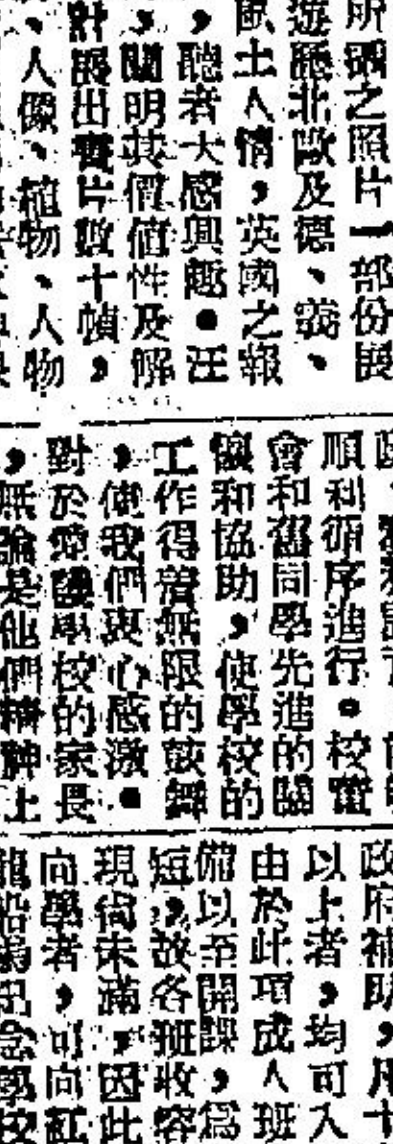 所攝之照片一部份展
遊歷北歐及德、義、
風土人情，英國之報
，聽者大感興趣●汪
，闡明其價值性及解
計展出書片數十幀，
、人像、植物、人物
順利循序進行。校董
會和舊同學先進的關
懷和協助，使學校的
工作得着無限的鼓舞
，使我們衷心感激。
對於愛護學校的家長
，無論是他們精神上
政府補助，凡十
以上者，均可入
由於此項成人班
備以至開課，為
短，故各班收容
現尚未滿，因此
向學者，可向紅
龍船
紀念學校